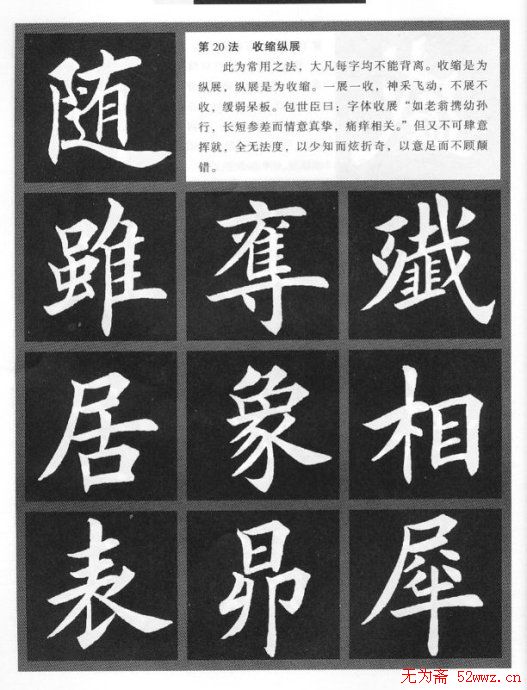 随
第20法 收缩纵展
此为常用之法，大凡每字均不能背离。收缩是为
纵展，纵展是为收缩。一展一收，神采飞动，不展不
收，缓弱呆板。包世臣曰：字体收展“如老翁携幼孙
行，长短参差而情意真挚，痛痒相关。”但又不可肆意
挥就，全无法度，以少知而炫折奇，以意足而不顾颠
错。
雖 奪 殲
居 象 相
表 昴 犀
无为斋 52wwz.cn